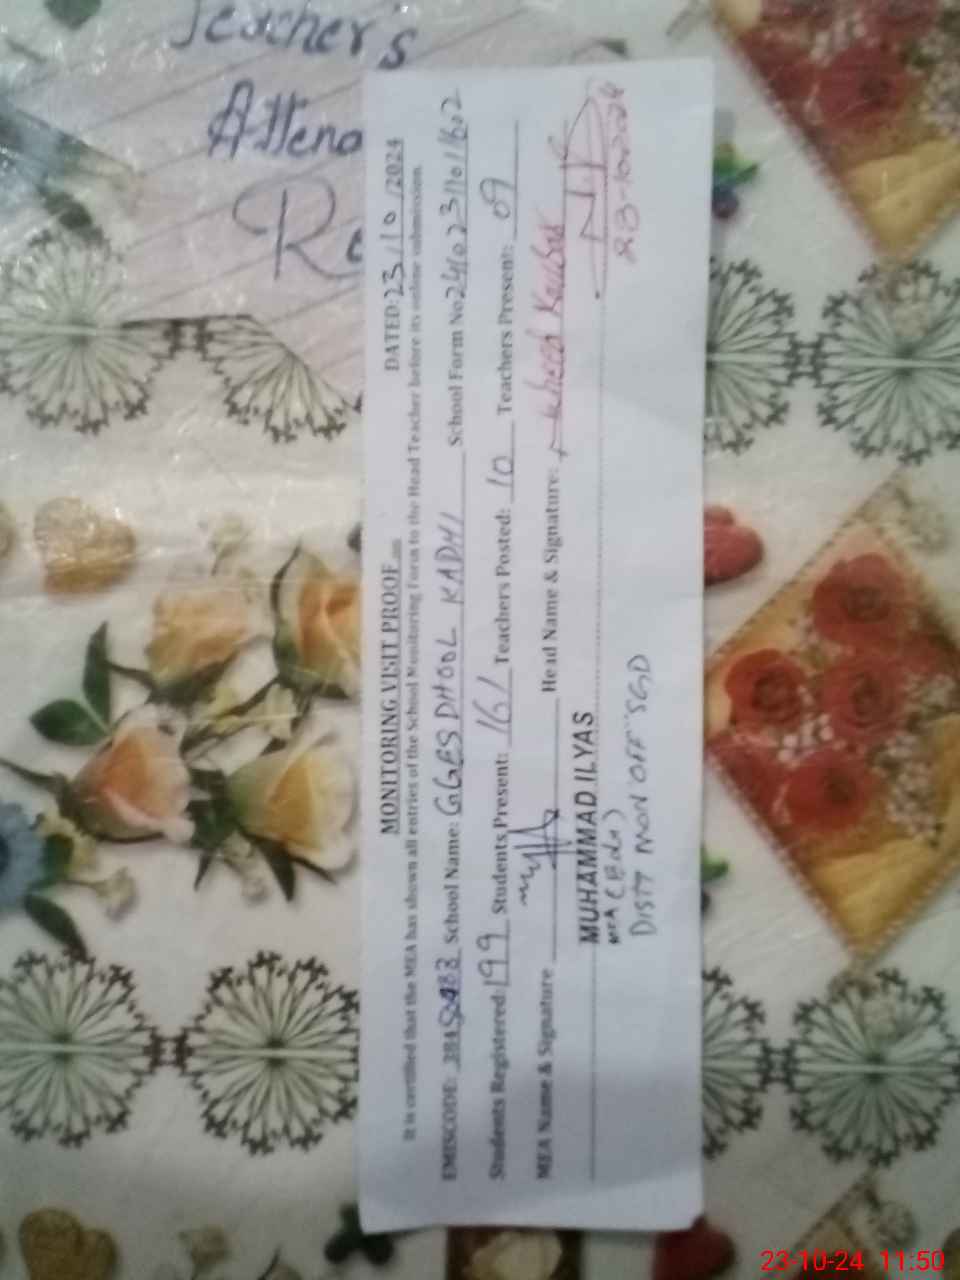 Teacher's
Atten
R
MONITORING VISIT PROOF DATED: 23/10/2024
It is certified that the MEA has shown all entries of the School Monitoring Form to the Head Teacher before its online submission.
EMISCODE: School Name: GGES DHOOL KADHI School Form No
Students Registered: 199 Students Present: 161 Teachers Posted: 10 Teachers Present: 09
MEA Name & Signature Head Name & Signature: Kausar
MUHAMMAD ILYAS
MEA
DISTT MON OFF SGD
23-10-2024
23-10-24 11:50